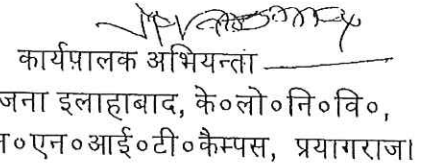 कार्यपालक अभियन्ता
जना इलाहाबाद, के०लो०नि०वि०,
न०एन०आई०टी०कैम्पस, प्रयागराज।